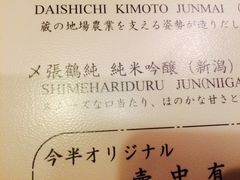 DAISHICHI KIMOTO JUNMAI (
蔵の地場農業を支える姿勢が造りだし
〆張鶴純 純米吟醸（新潟）
SHIMEHARIDURU JUN(NIIGA
スムーズな口当たり、ほのかな甘さと
今半オリジナル